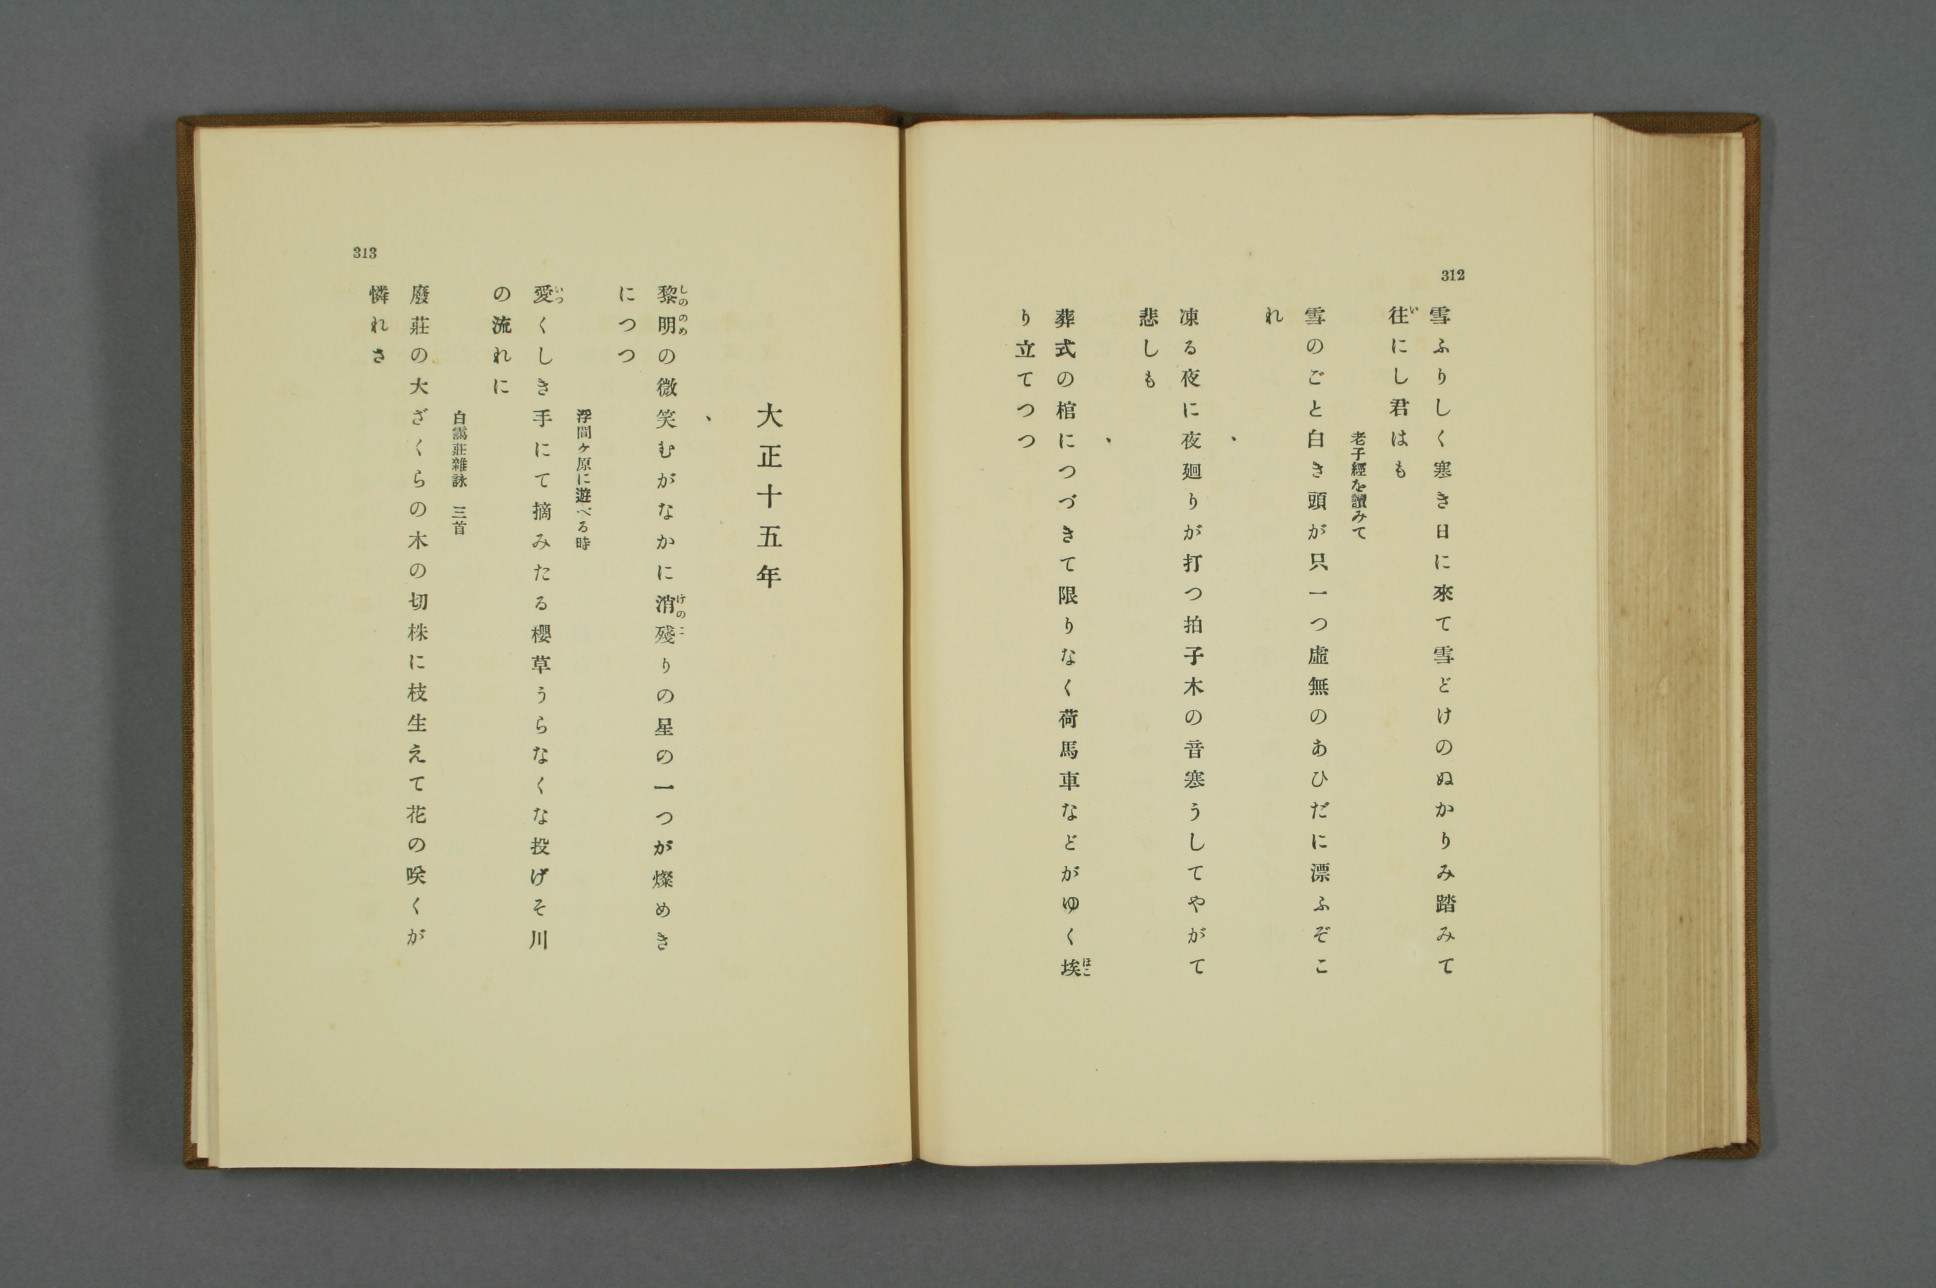 312
雪ふりしく寒き日に來て雪どけのぬかりみ踏みて
往にし君はも
老子經を讀みて
雪のごと白き頭が只一つ虛無のあひだに漂ふぞこ
れ
、
凍る夜に夜廻りが打つ拍子木の音寒うしてやがて
悲しも
、
葬式の棺につづきて限りなく荷馬車などがゆく埃
り立てつつ
大正十五年
、
黎明の微笑むがなかに消殘りの星の一つが燦めき
につつ
浮間ケ原に遊べる時
愛くしき手にて摘みたる櫻草うらなくな投げそ川
の流れに
白靄莊雜詠 三首
廢莊の大ざくらの木の切株に枝生えて花の咲くが
憐れさ
313